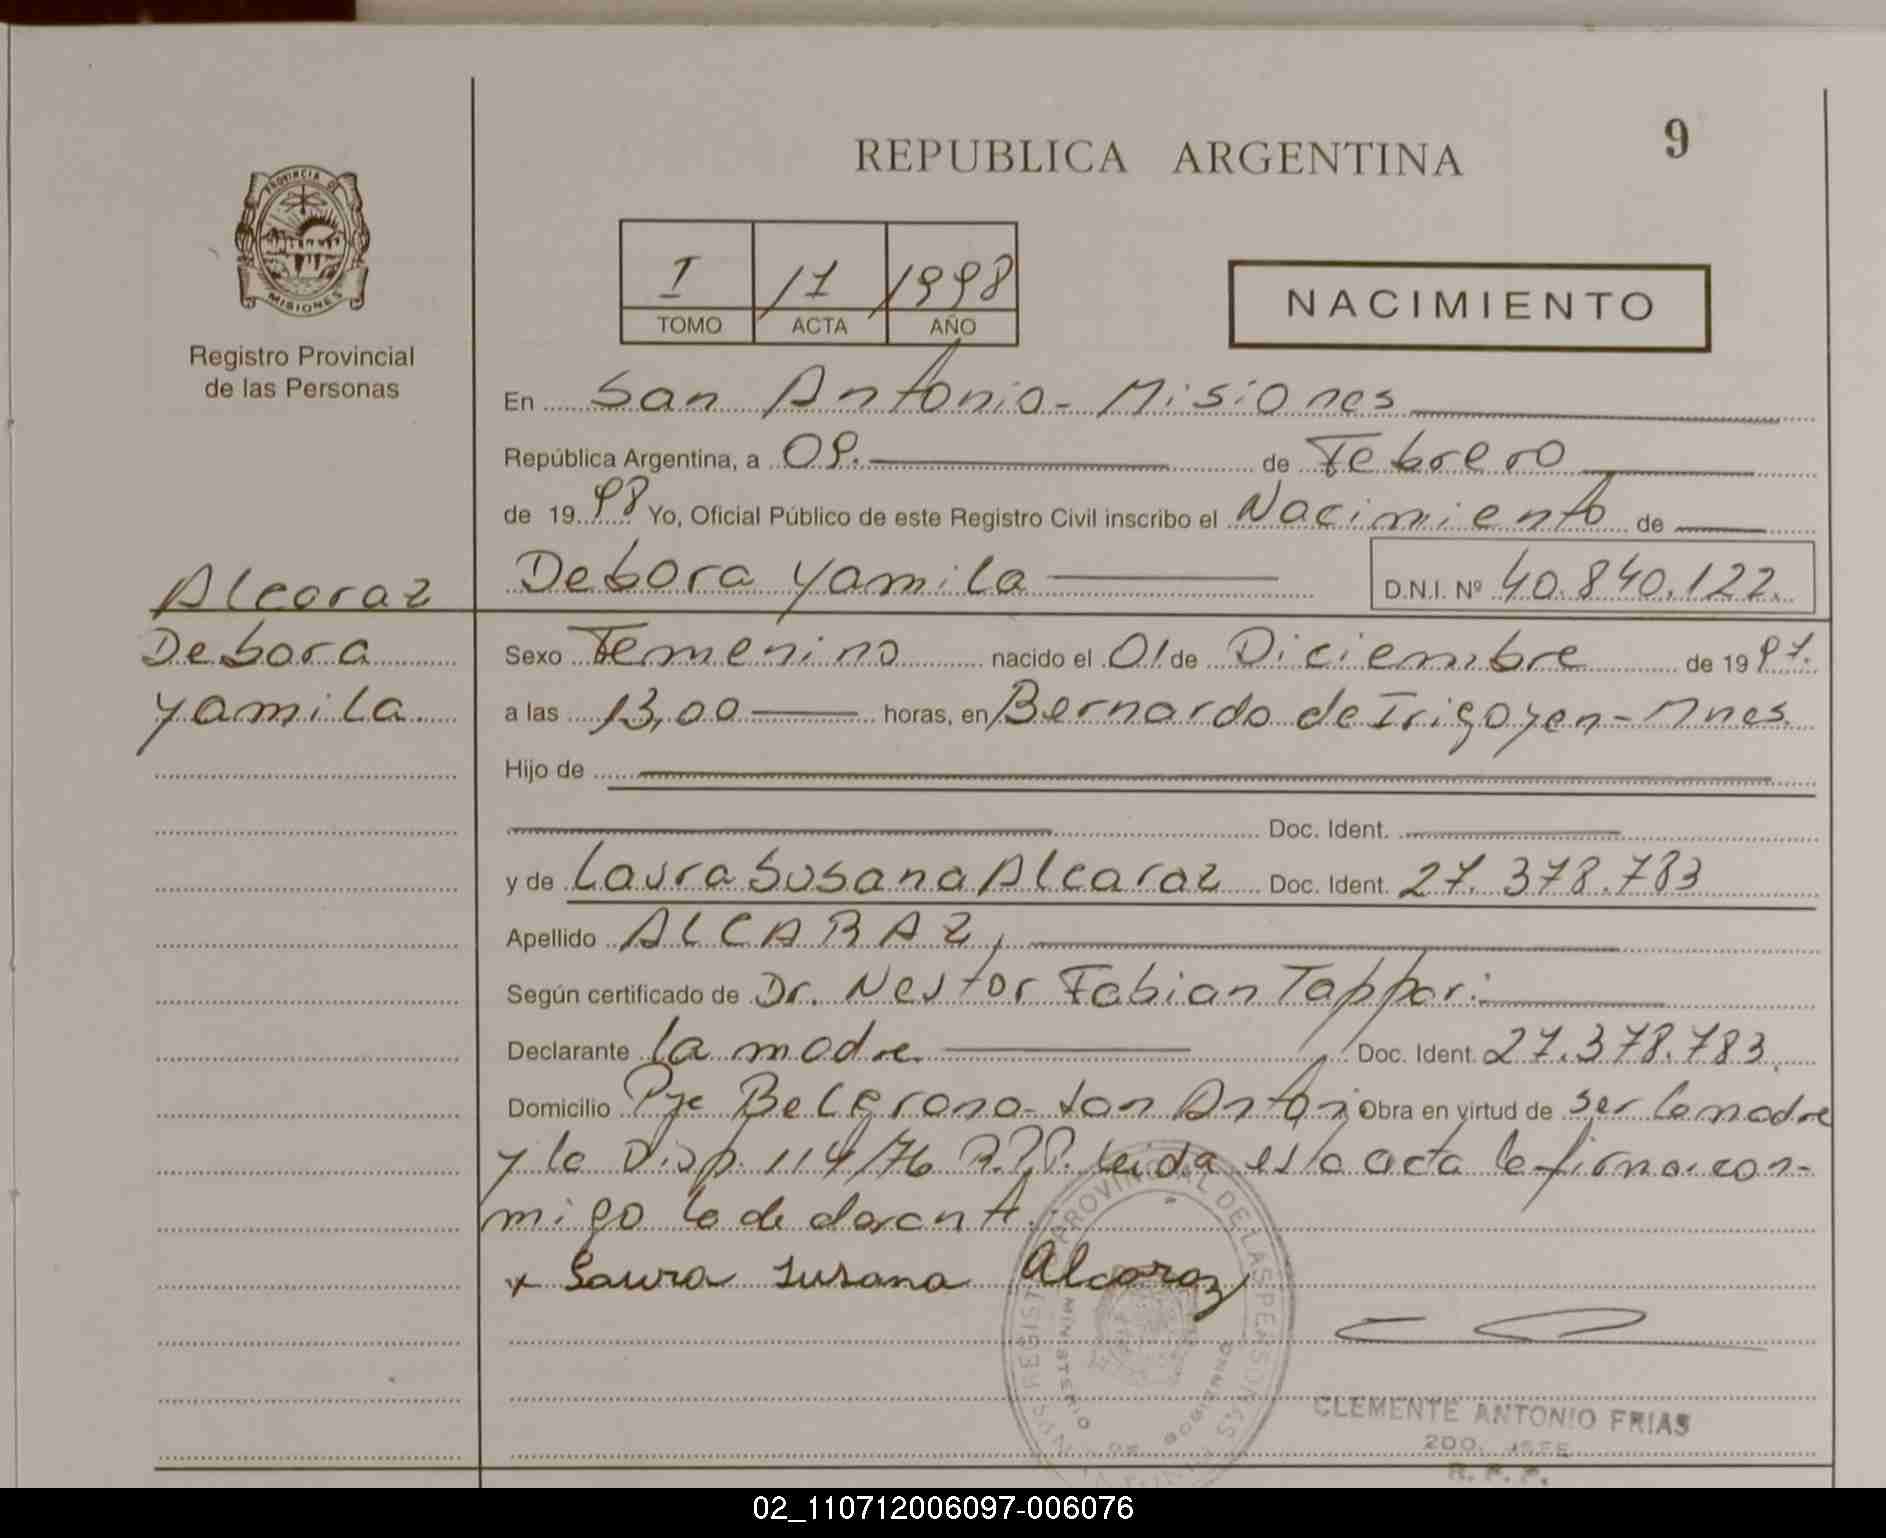 REPUBLICA ARGENTINA
9
PROVINCIA DE
MISIONES
Registro Provincial
de las Personas
I /7 /1998
TOMO ACTA AÑO
NACIMIENTO
En San Antonio - Misiones
República Argentina, a 09. de Febrero
de 1998 Yo, Oficial Público de este Registro Civil inscribo el Nacimiento de
Debora Yamila D.N.I. Nº 40.840.122.
Alcaraz
Debora
Yamila
Sexo Femenino nacido el 01 de Diciembre de 1997.
a las 13,00 horas, en Bernardo de Irigoyen - Mnes.
Hijo de
Doc. Ident.
y de Laura Susana Alcaraz Doc. Ident. 27.378.783
Apellido ALCARAZ,
Según certificado de Dr. Nestor Fabian Tappari
Declarante la madre Doc. Ident. 27.378.783.
Domicilio Pje Belgrano - San Antonio Obra en virtud de ser la madre
y la Disp. 114/76 R.P.P. leida esta acta la firma con-
migo la declarante.
x Laura Susana Alcaraz
REGISTRO PROVINCIAL DE LAS PERSONAS
MINISTERIO DE GOBIERNO
CLEMENTE ANTONIO FRIAS
2DO. JEFE
R. P. P.
02_110712006097-006076